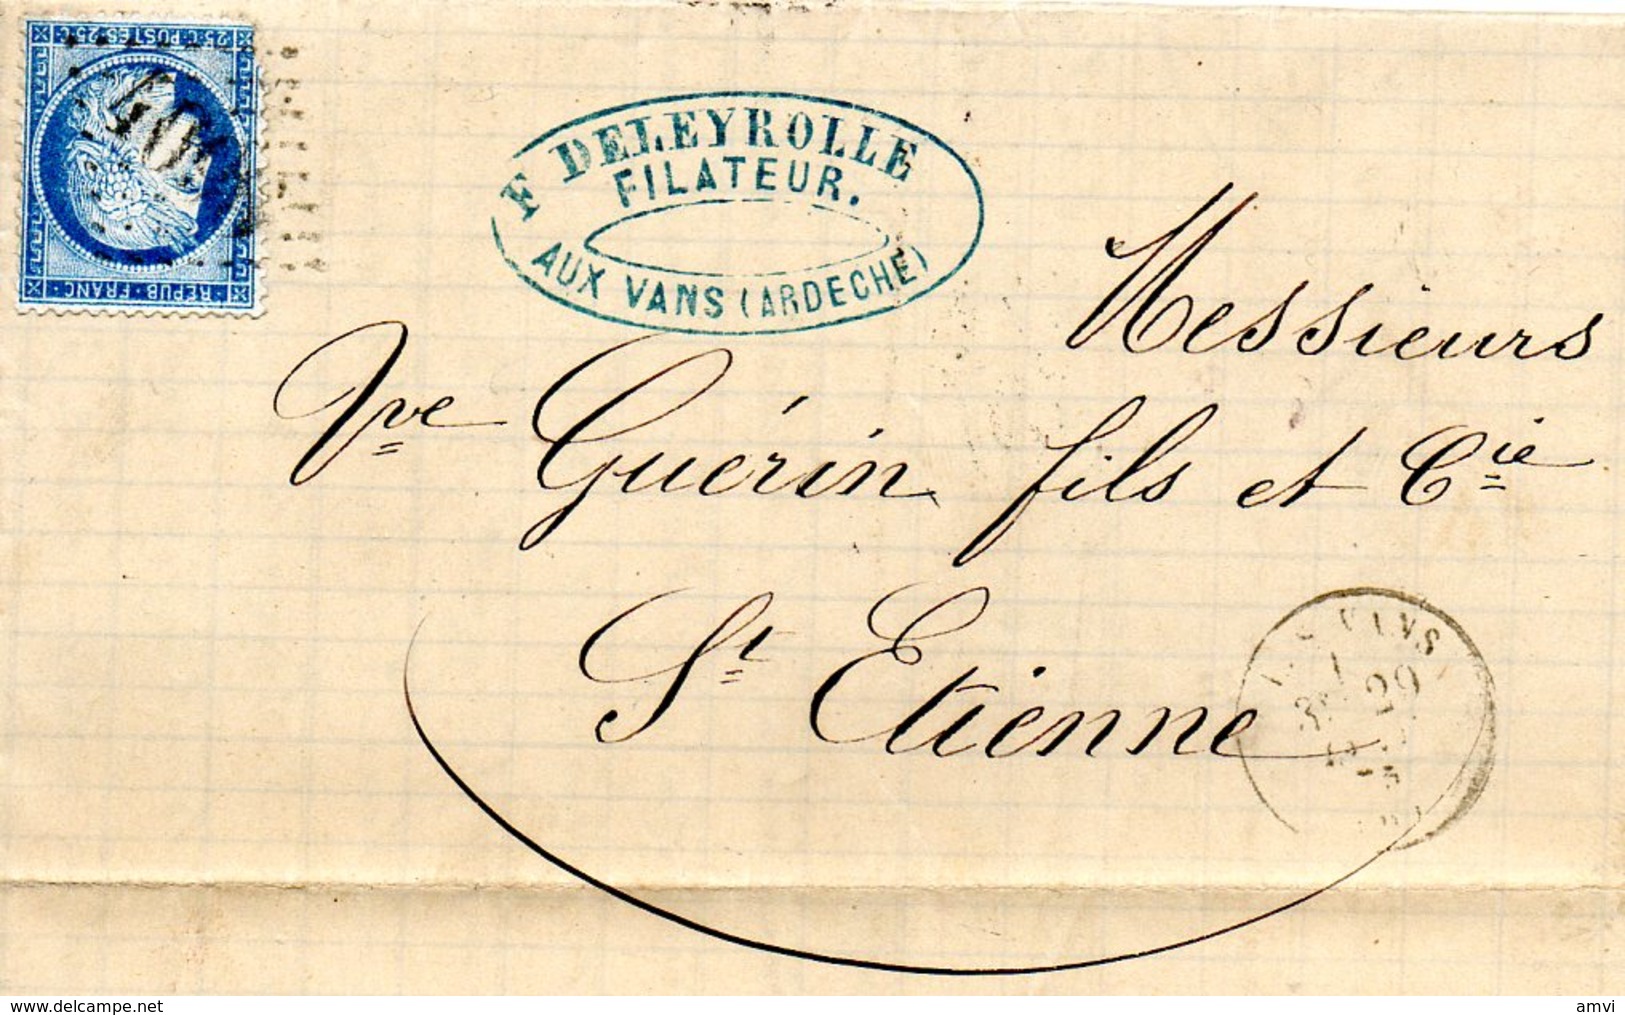 25 C POSTES 25 C
REPUB · FRANC ·
F DELEYROLLE
FILATEUR.
AUX VANS (ARDECHE)
Messieurs
Vve Guérin fils et Cie
St Etienne
VANS
delcampe.net
amvi